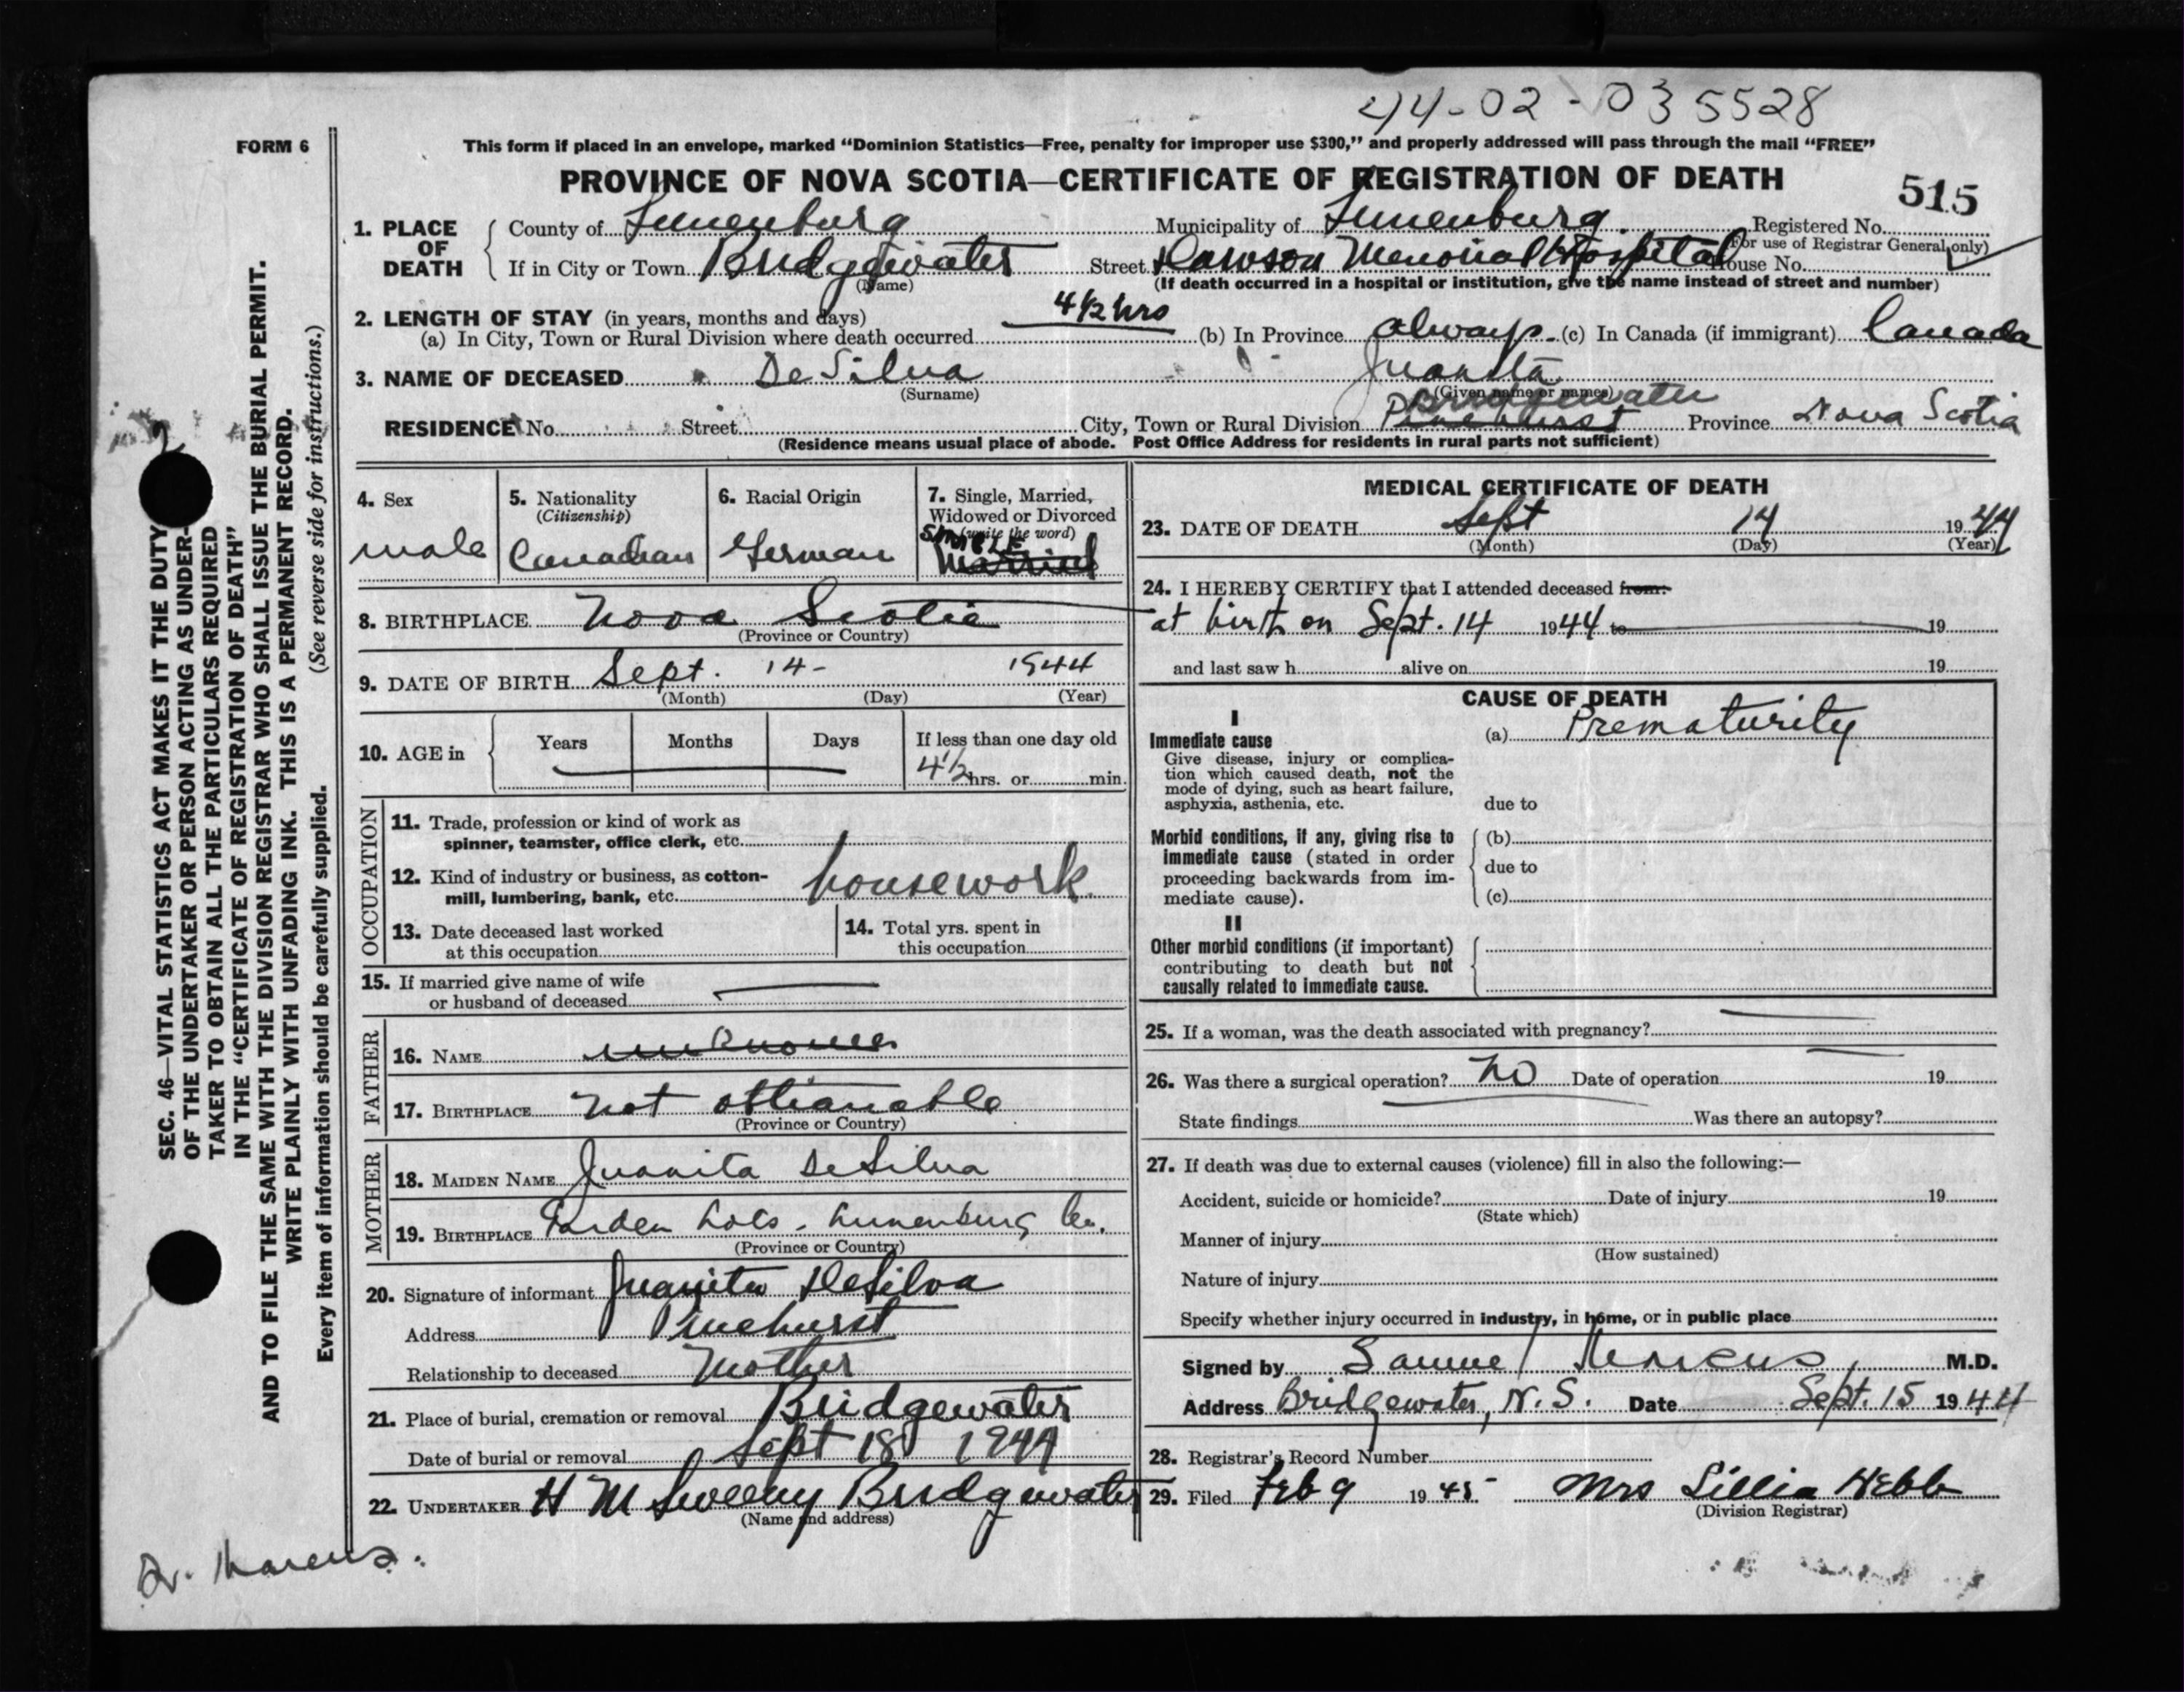 44-02-035528
FORM 6
This form if placed in an envelope, marked “Dominion Statistics—Free, penalty for improper use $300,” and properly addressed will pass through the mail “FREE”
PROVINCE OF NOVA SCOTIA—CERTIFICATE OF REGISTRATION OF DEATH
515
1. PLACE OF DEATH
County of Lunenburg Municipality of Lunenburg Registered No.
(For use of Registrar General only)
If in City or Town Bridgewater Street Dawson Memorial Hospital House No.
(Name) (If death occurred in a hospital or institution, give the name instead of street and number)
2. LENGTH OF STAY (in years, months and days)
(a) In City, Town or Rural Division where death occurred 4½ hrs (b) In Province always (c) In Canada (if immigrant) Canada
3. NAME OF DECEASED DeSilva Juanita
(Surname) (Given name or names)
Bridgewater
RESIDENCE No. Street City, Town or Rural Division Pinehurst Province Nova Scotia
(Residence means usual place of abode. Post Office Address for residents in rural parts not sufficient)
SEC. 46—VITAL STATISTICS ACT MAKES IT THE DUTY
OF THE UNDERTAKER OR PERSON ACTING AS UNDER-
TAKER TO OBTAIN ALL THE PARTICULARS REQUIRED
IN THE “CERTIFICATE OF REGISTRATION OF DEATH”
AND TO FILE THE SAME WITH THE DIVISION REGISTRAR WHO SHALL ISSUE THE BURIAL PERMIT.
WRITE PLAINLY WITH UNFADING INK. THIS IS A PERMANENT RECORD.
Every item of information should be carefully supplied. (See reverse side for instructions.)
4. Sex
male
5. Nationality
(Citizenship)
Canadian
6. Racial Origin
German
7. Single, Married,
Widowed or Divorced
(write the word)
SINGLE
Married
8. BIRTHPLACE Nova Scotia
(Province or Country)
9. DATE OF BIRTH Sept. 14- 1944
(Month) (Day) (Year)
10. AGE in
Years Months Days If less than one day old
4½ hrs. or min.
OCCUPATION
11. Trade, profession or kind of work as
spinner, teamster, office clerk, etc.
12. Kind of industry or business, as cotton-
mill, lumbering, bank, etc. housework
13. Date deceased last worked
at this occupation
14. Total yrs. spent in
this occupation
15. If married give name of wife
or husband of deceased
FATHER
16. NAME unknown
17. BIRTHPLACE not obtianable
(Province or Country)
MOTHER
18. MAIDEN NAME Juanita DeSilva
19. BIRTHPLACE Garden Lots - Lunenburg Co.
(Province or Country)
20. Signature of informant Juanita DeSilva
Address Pinehurst
Relationship to deceased Mother
21. Place of burial, cremation or removal Bridgewater
Date of burial or removal Sept 18 1944
22. UNDERTAKER H M Sweeny Bridgewater
(Name and address)
Dr. Marcus.
MEDICAL CERTIFICATE OF DEATH
23. DATE OF DEATH Sept 14 1944
(Month) (Day) (Year)
24. I HEREBY CERTIFY that I attended deceased from:
at birth on Sept. 14 1944 to 19
and last saw h alive on 19
CAUSE OF DEATH
I
Immediate cause
Give disease, injury or complica-
tion which caused death, not the
mode of dying, such as heart failure,
asphyxia, asthenia, etc.
(a) Prematurity
due to
Morbid conditions, if any, giving rise to
immediate cause (stated in order
proceeding backwards from im-
mediate cause).
(b)
due to
(c)
II
Other morbid conditions (if important)
contributing to death but not
causally related to immediate cause.
25. If a woman, was the death associated with pregnancy?
26. Was there a surgical operation? No Date of operation 19
State findings Was there an autopsy?
27. If death was due to external causes (violence) fill in also the following:—
Accident, suicide or homicide? Date of injury 19
(State which)
Manner of injury
(How sustained)
Nature of injury
Specify whether injury occurred in industry, in home, or in public place
Signed by Samuel Marcus, M.D.
Address Bridgewater, N.S. Date Sept. 15 1944
28. Registrar's Record Number
29. Filed Feb 9 1945 Mrs Lillia Webb
(Division Registrar)